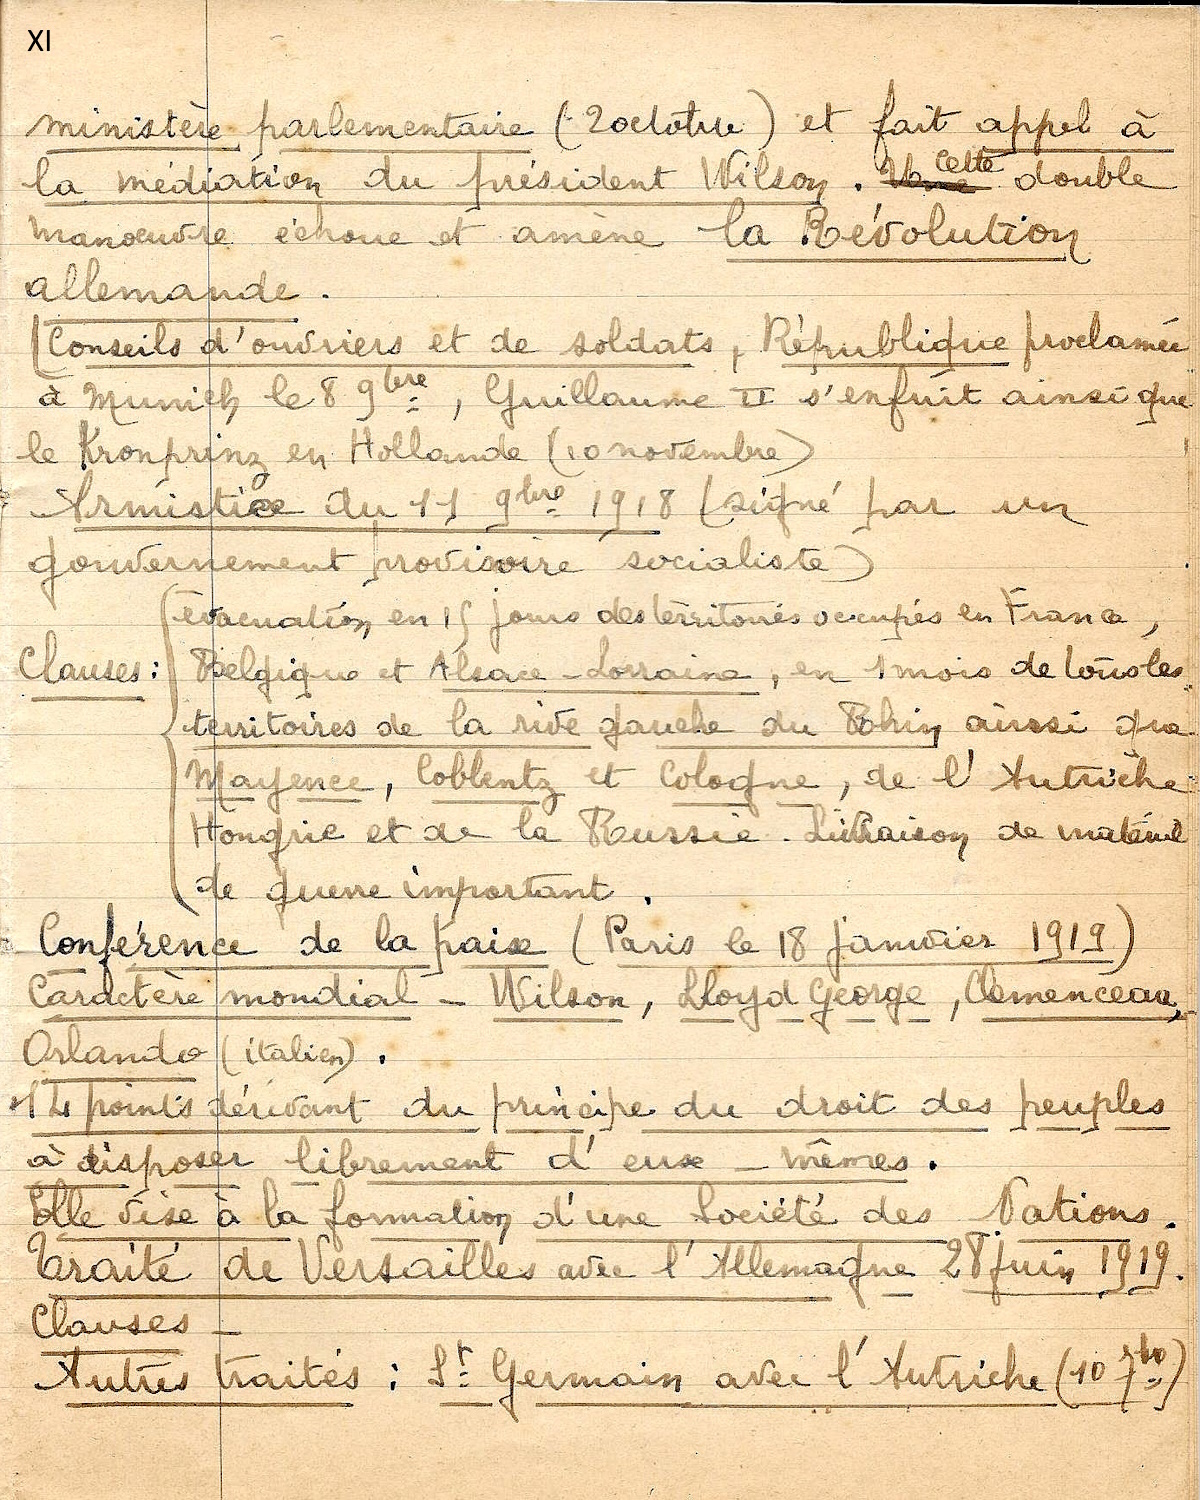 XI
ministère parlementaire (2 octobre) et fait appel à
la médiation du président Wilson. Une Cette double
manœuvre échoue et amène la Révolution
allemande.
(Conseils d'ouvriers et de soldats, République proclamée
à Munich le 8 9bre, Guillaume II s'enfuit ainsi que
le Kronprinz en Hollande (10 novembre)
Armistice du 11 9bre 1918 (signé par un
gouvernement provisoire socialiste)
évacuation en 15 jours des territoires occupés en France,
Clauses : Belgique et Alsace-Lorraine, en 1 mois de tous les
territoires de la rive gauche du Rhin ainsi que
Mayence, Coblentz et Cologne, de l'Autriche
Hongrie et de la Russie. Livraison de matériel
de guerre important.
Conférence de la paix (Paris le 18 janvier 1919)
Caractère mondial - Wilson, Lloyd George, Clemenceau,
Orlando (italien).
14 points dérivant du principe du droit des peuples
à disposer librement d'eux-mêmes.
Elle vise à la formation d'une Société des Nations.
Traité de Versailles avec l'Allemagne 28 juin 1919.
Clauses -
Autres traités : St Germain avec l'Autriche (10 7bre)